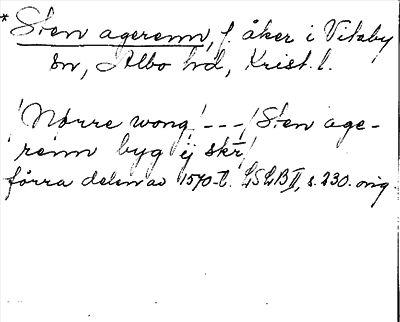 *Sten agerenn, f. åker i Vitaby
sn, Albo hd, Krist. l.
/Nørre wong/ --- /Sten age-
renn byg ij skr̄/
förra delen av 1570-t. LSLB II, s. 230. orig.